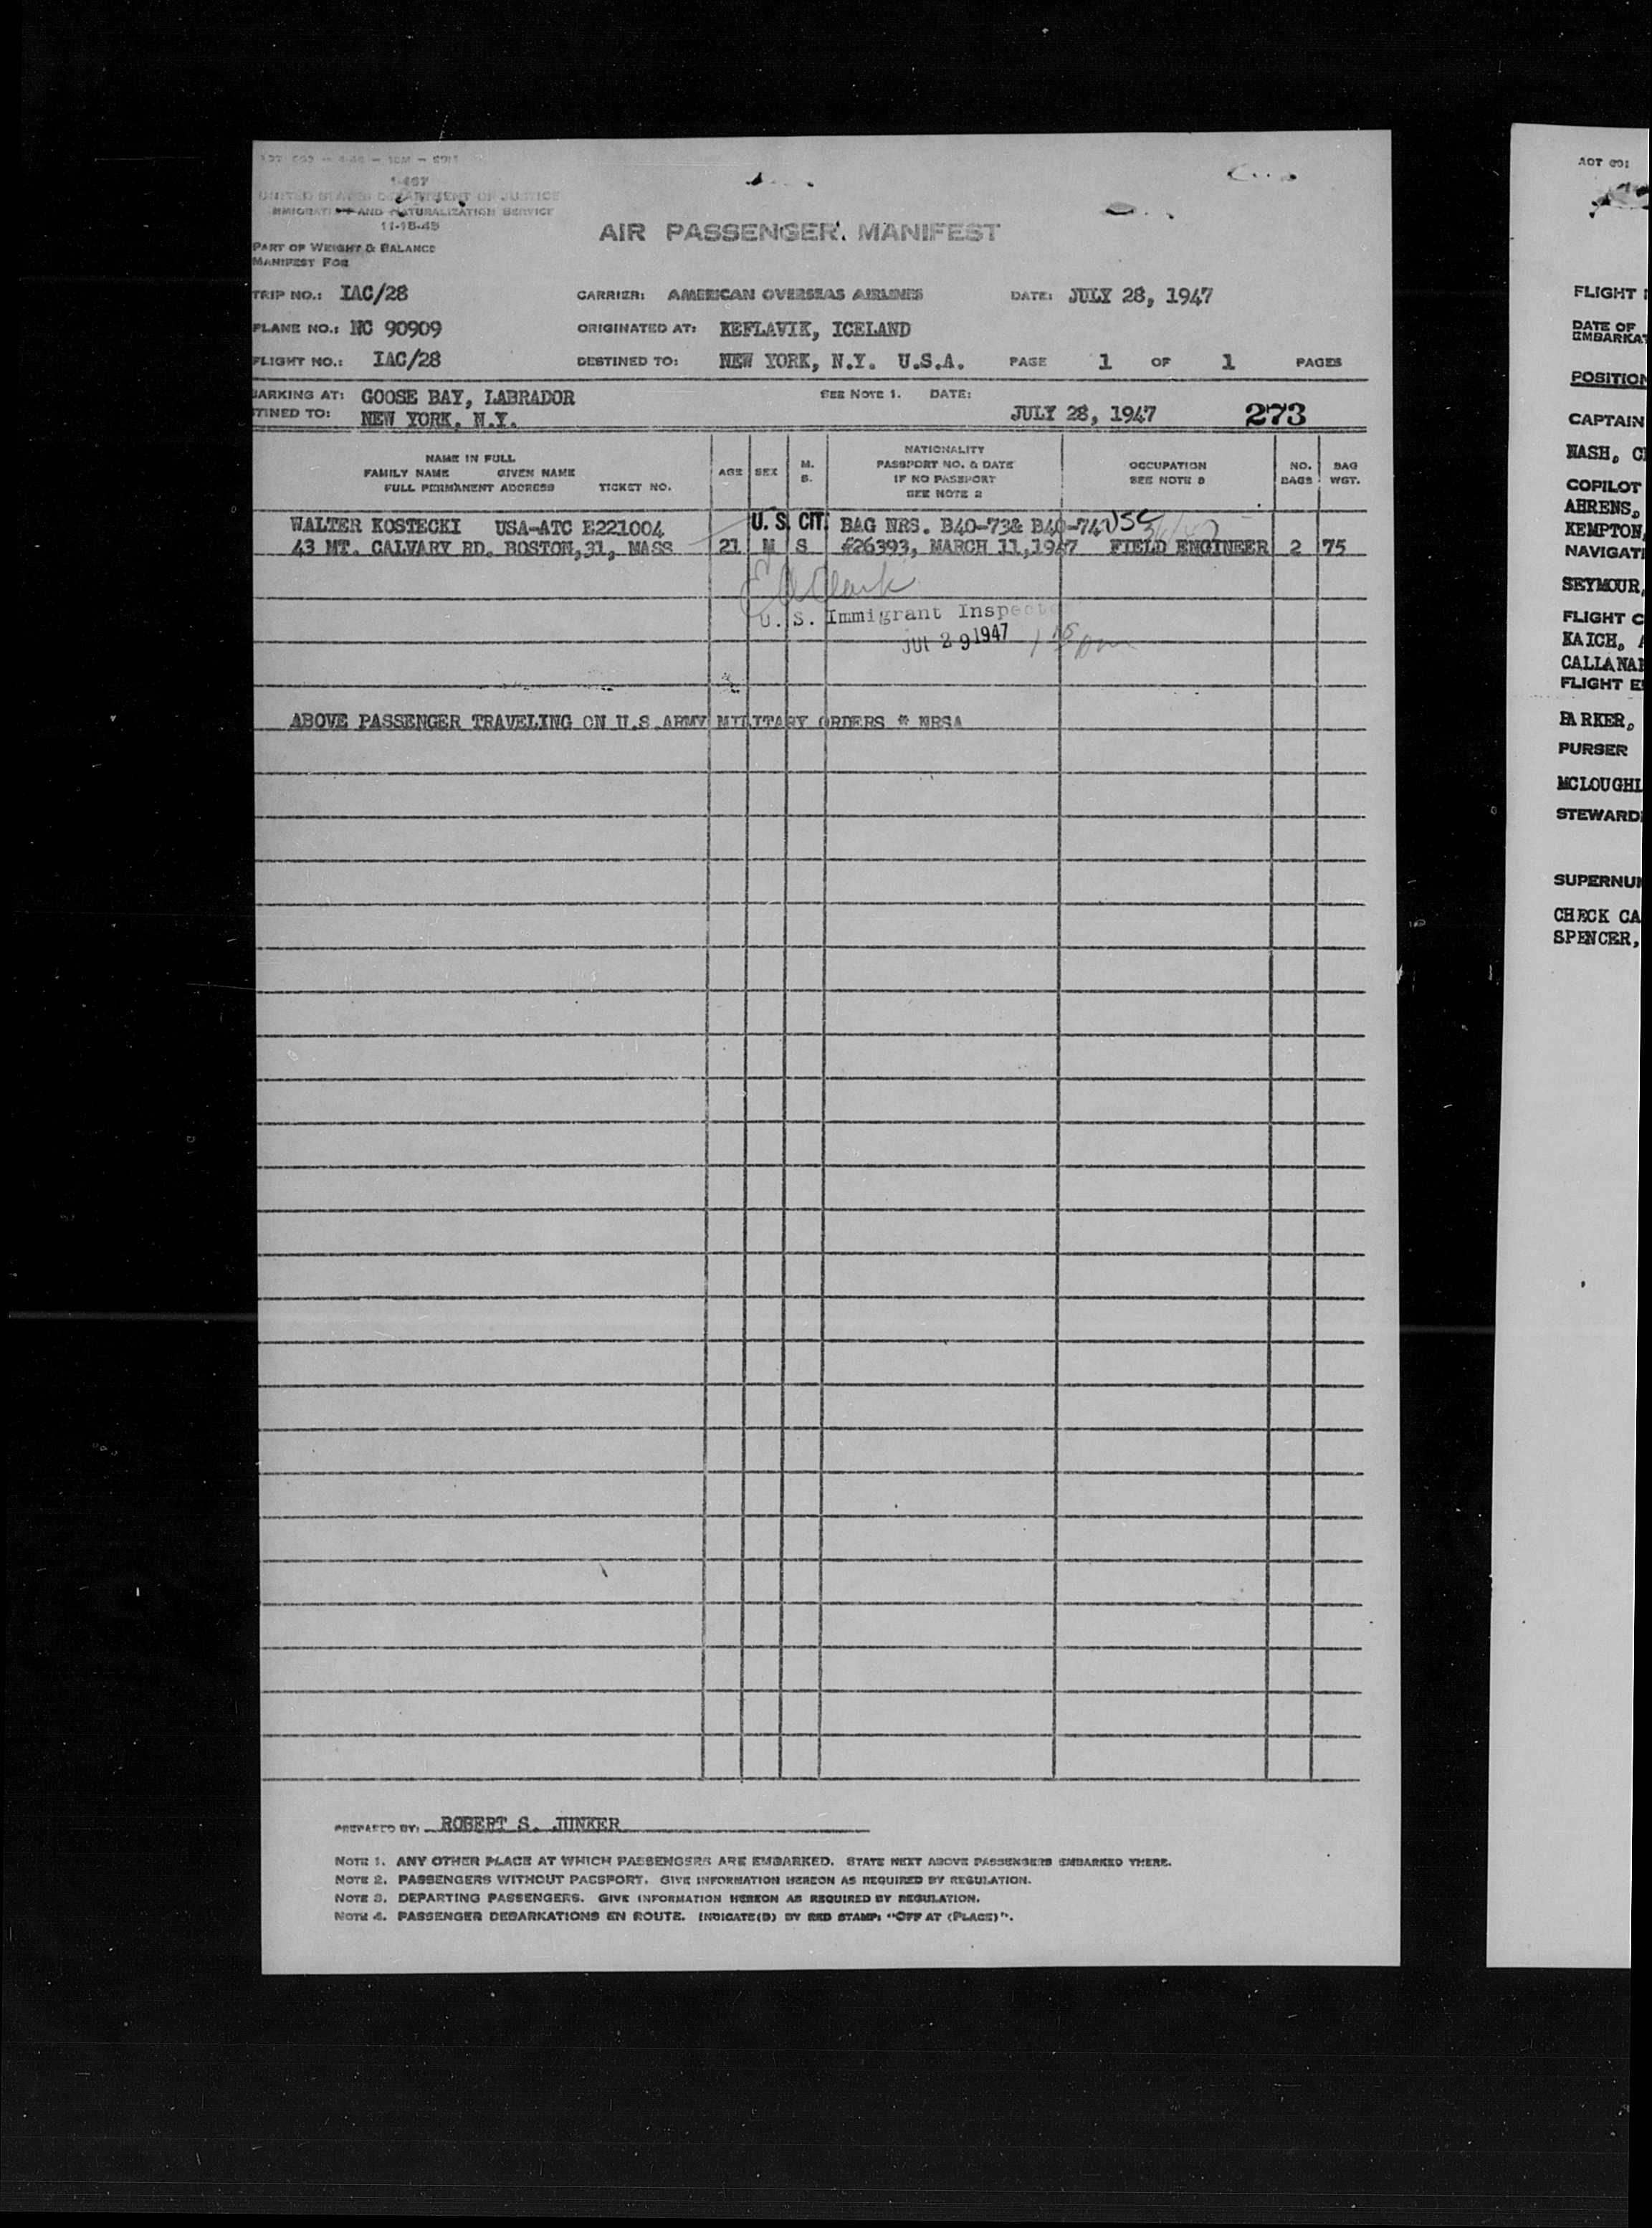 1-467
UNITED STATES DEPARTMENT OF JUSTICE
IMMIGRATION AND NATURALIZATION SERVICE
11-15-45
PART OF WEIGHT & BALANCE
MANIFEST FOR
AIR PASSENGER MANIFEST
TRIP NO.: IAC/28 CARRIER: AMERICAN OVERSEAS AIRLINES DATE: JULY 28, 1947
PLANE NO.: NC 90909 ORIGINATED AT: KEFLAVIK, ICELAND
FLIGHT NO.: IAC/28 DESTINED TO: NEW YORK, N.Y. U.S.A. PAGE 1 OF 1 PAGES
BARKING AT: GOOSE BAY, LABRADOR SEE NOTE 1. DATE:
TINED TO: NEW YORK, N.Y. JULY 28, 1947 273
NAME IN FULL
FAMILY NAME GIVEN NAME
FULL PERMANENT ADDRESS TICKET NO.
AGE SEX M. S.
NATIONALITY
PASSPORT NO. & DATE
IF NO PASSPORT
SEE NOTE 2
OCCUPATION
SEE NOTE 3
NO. BAGS
BAG WGT.
WALTER KOSTECKI USA-ATC E221004 U.S. CIT. BAG NRS. B40-73& B40-74 USC
43 MT. CALVARY RD. BOSTON,31, MASS 21 M S #26393, MARCH 11,1947 FIELD ENGINEER 2 75
U. S. Immigrant Inspector
JUL 29 1947
ABOVE PASSENGER TRAVELING ON U.S ARMY MILITARY ORDERS # NRSA
PREPARED BY: ROBERT S. JUNKER
NOTE 1. ANY OTHER PLACE AT WHICH PASSENGERS ARE EMBARKED. STATE NEXT ABOVE PASSENGERS EMBARKED THERE.
NOTE 2. PASSENGERS WITHOUT PASSPORT. GIVE INFORMATION HEREON AS REQUIRED BY REGULATION.
NOTE 3. DEPARTING PASSENGERS. GIVE INFORMATION HEREON AS REQUIRED BY REGULATION.
NOTE 4. PASSENGER DEBARKATIONS EN ROUTE. INDICATE(D) BY RED STAMP: "OFF AT (PLACE)".
AOT 601
FLIGHT
DATE OF
EMBARKAT
POSITION
CAPTAIN
NASH, C
COPILOT
AHRENS,
KEMPTON,
NAVIGATI
SEYMOUR,
FLIGHT C
KAICH, A
CALLANAN
FLIGHT E
PARKER,
PURSER
MCLOUGHL
STEWARD
SUPERNUM
CHECK CA
SPENCER,